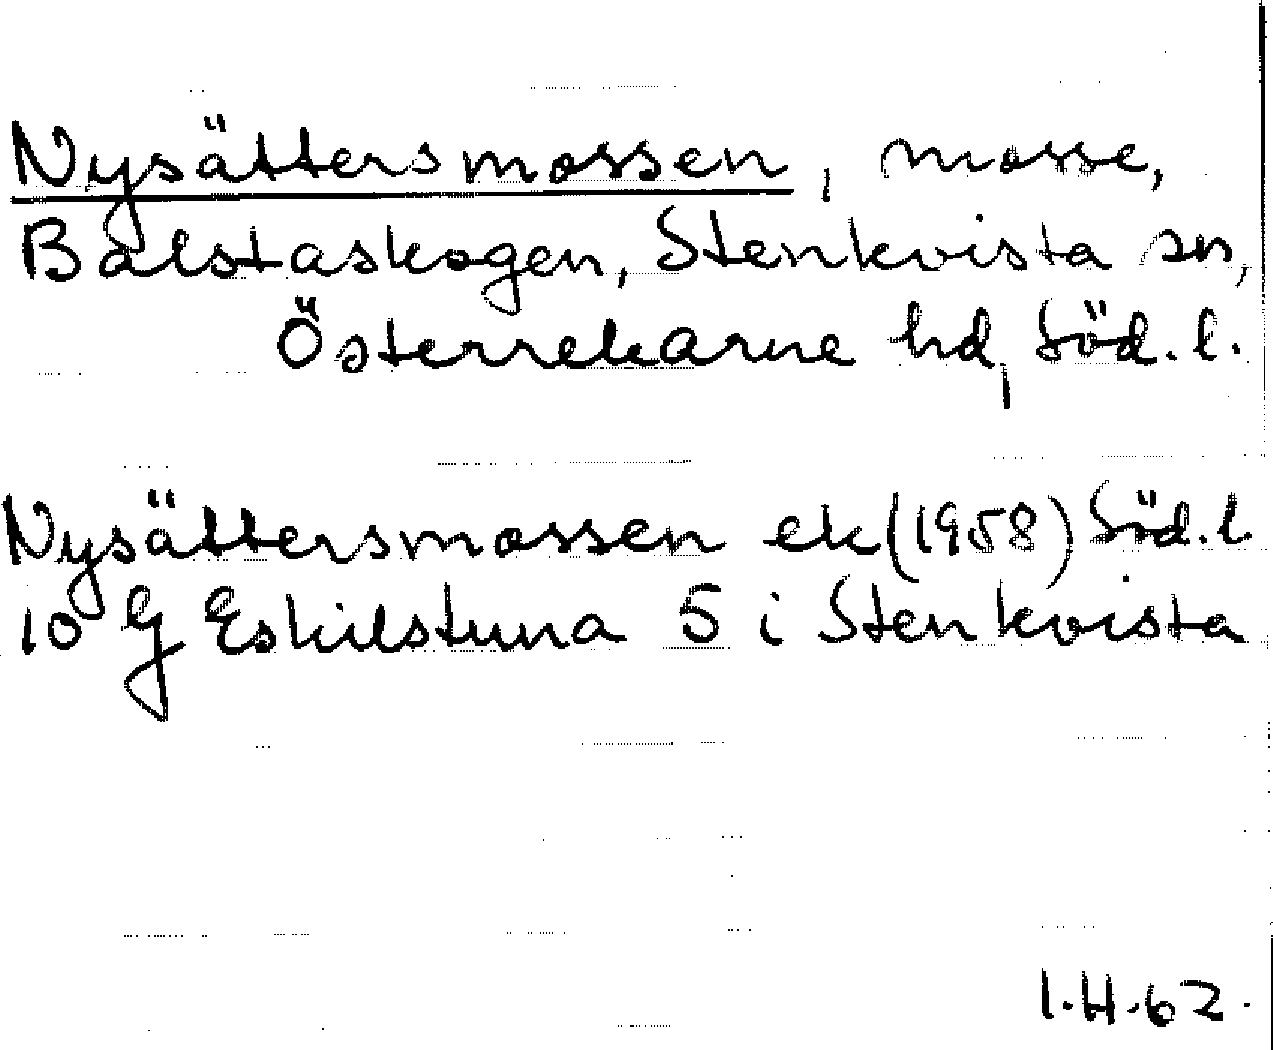 Nysättersmossen, mosse,
Balstaskogen, Stenkvista sn,
Österrekarne hd, Söd. l.
Nysättersmossen ek (1958) Söd. l.
10 G Eskilstuna 5 i Stenkvista
I.H.62.